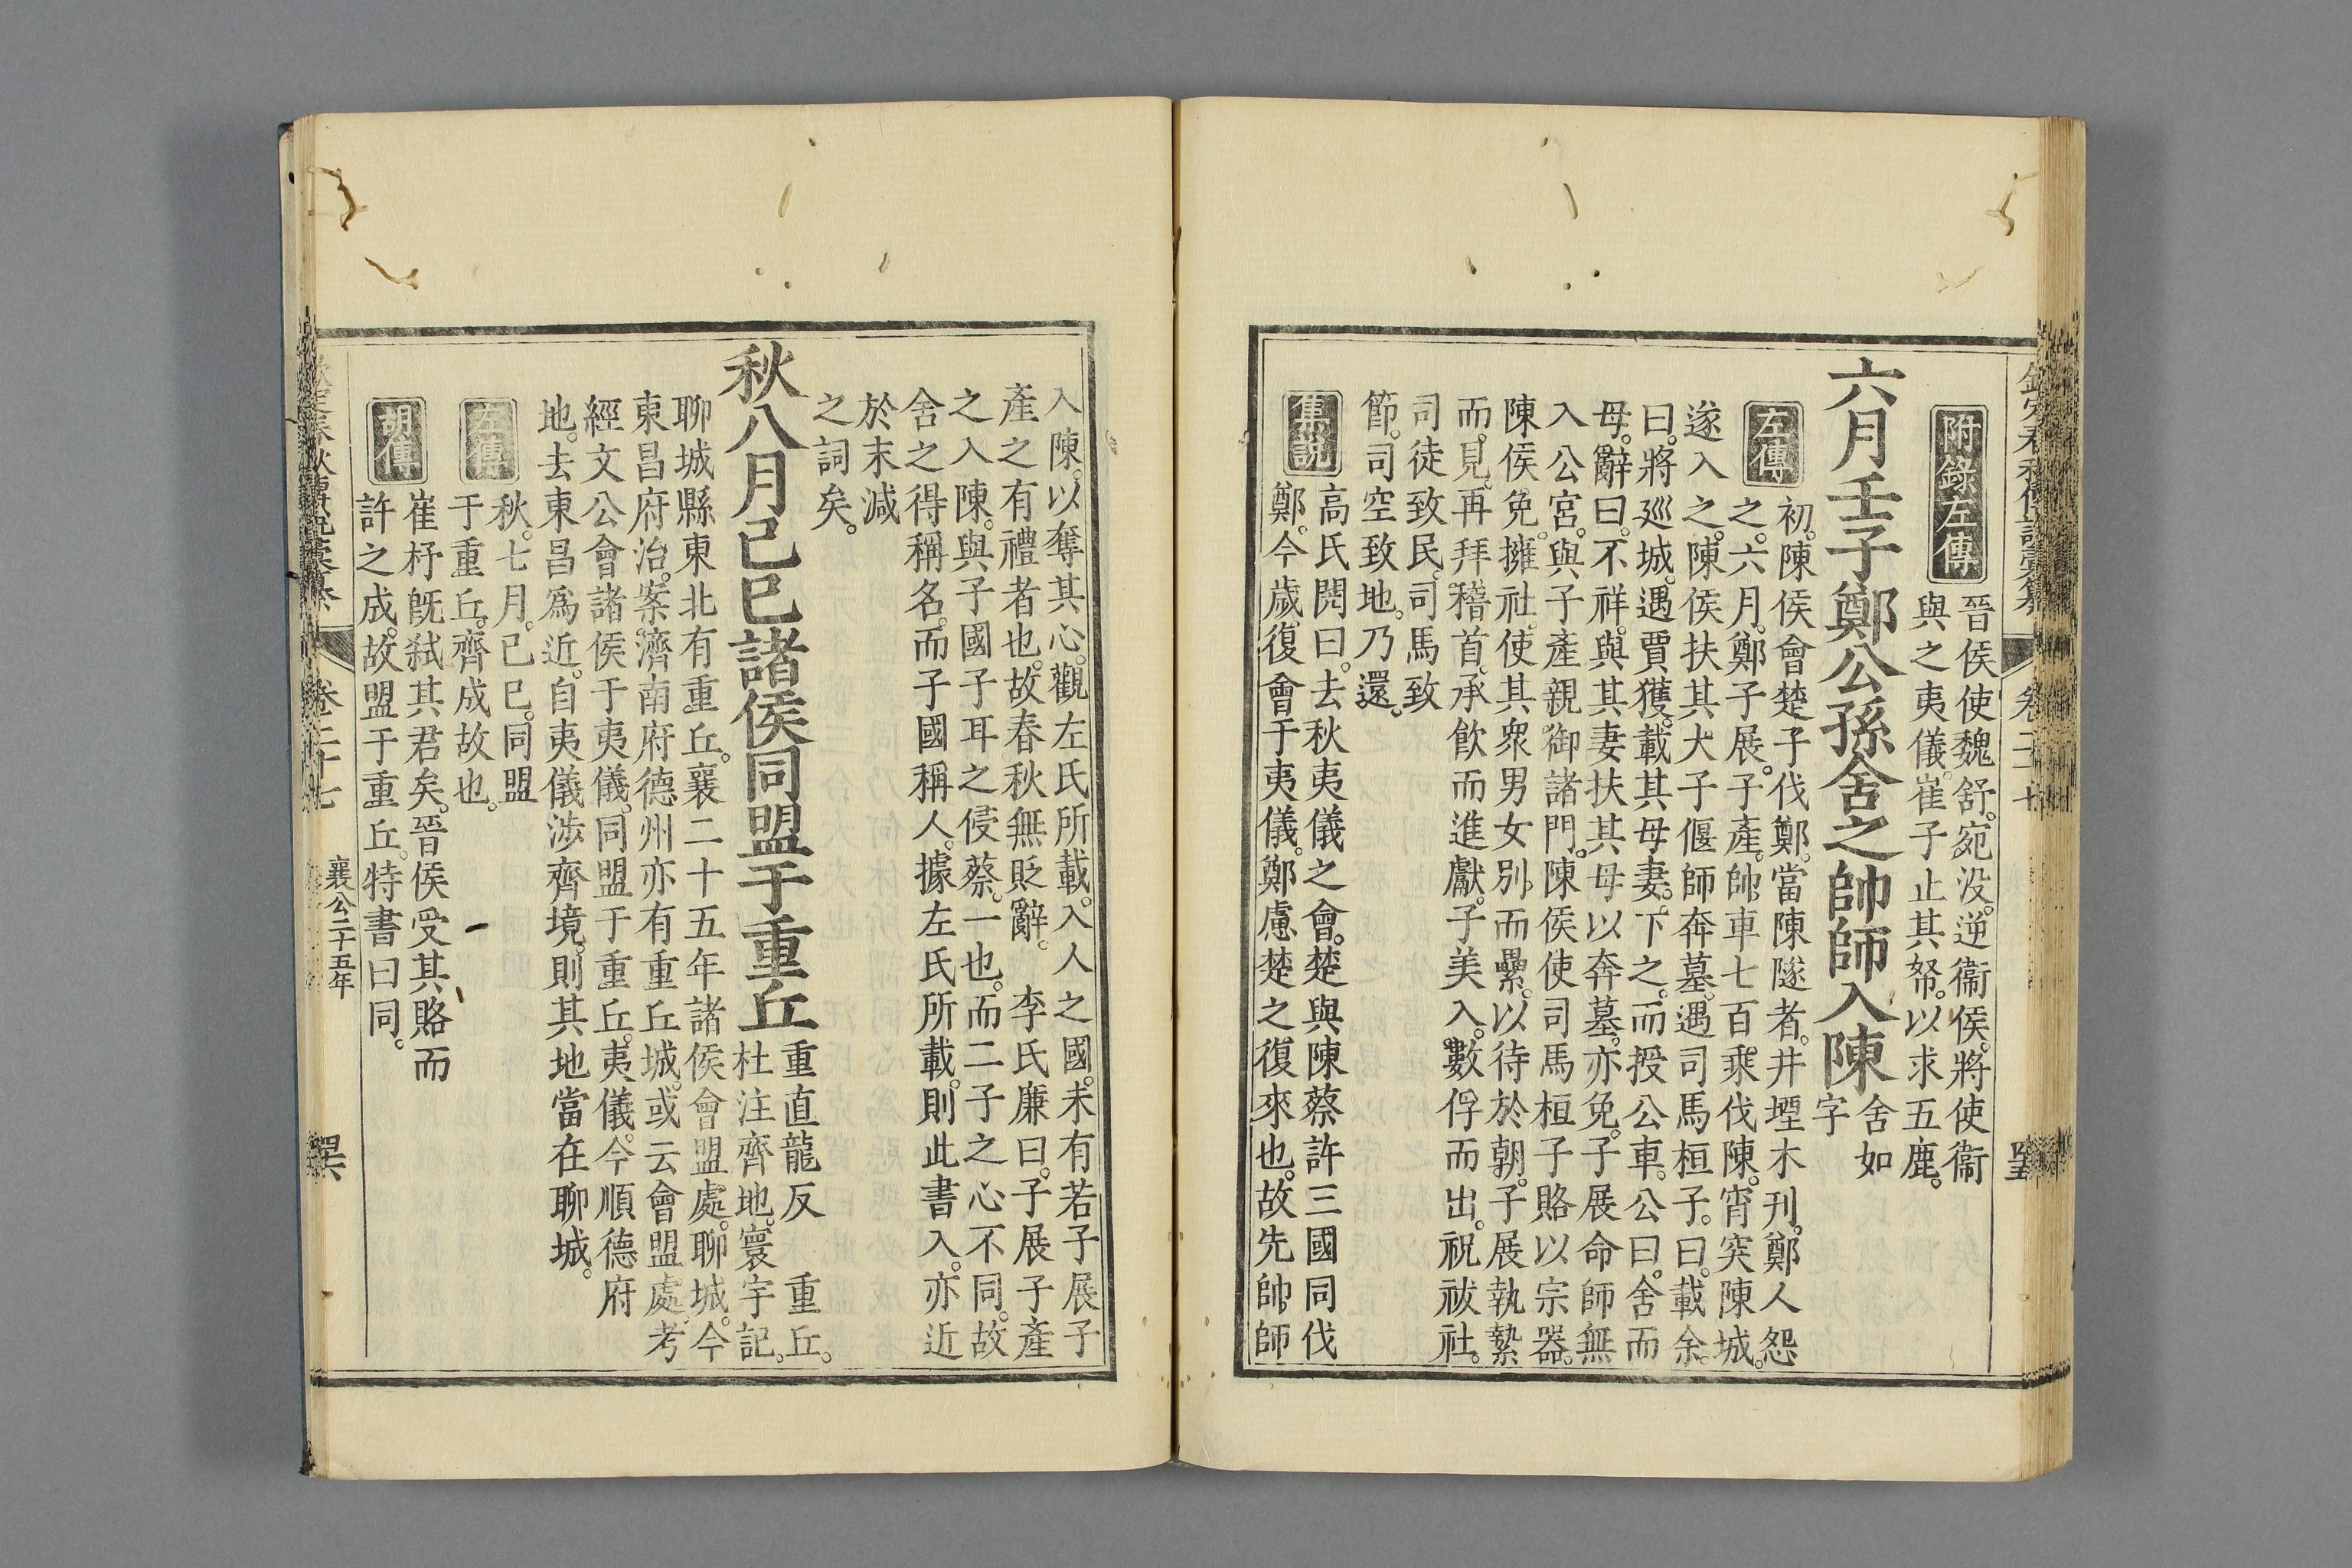 附錄左傳
晉侯使魏舒。宛没。逆衞侯。將使衞
與之夷儀。崔子止其帑。以求五鹿。
六月壬子鄭公孫舍之帥師入陳
舍如
字
左傳
初。陳侯會楚子伐鄭。當陳隧者。井堙木刊。鄭人怨
之。六月。鄭子展。子產。帥車七百乘伐陳。宵突陳城。
遂入之。陳侯扶其大子偃師奔墓。遇司馬桓子。曰。載余。
曰。將巡城。遇賈獲。載其母妻。下之。而授公車。公曰。舍而
母。辭曰。不祥。與其妻扶其母以奔墓。亦免。子展命師無
入公宮。與子產親御諸門。陳侯使司馬桓子賂以宗器。
陳侯免。擁社。使其眾男女別。而纍。以待於朝。子展執縶
而見。再拜稽首。承飲而進獻。子美入。數俘而出。祝祓社。
司徒致民。司馬致
節。司空致地。乃還。
集說
高氏閌曰。去秋夷儀之會。楚與陳蔡許三國同伐
鄭。今歲復會于夷儀。鄭慮楚之復來也。故先帥師
入陳。以奪其心。觀左氏所載。入人之國。未有若子展子
產之有禮者也。故春秋無貶辭。　李氏廉曰。子展子產
之入陳。與子國子耳之侵蔡。一也。而二子之心不同。故
舍之得稱名。而子國稱人。據左氏所載。則此書入。亦近
於末減
之詞矣。
秋八月己巳諸侯同盟于重丘
重直龍反　重丘。
杜注齊地。寰宇記。
聊城縣東北有重丘。襄二十五年諸侯會盟處。聊城。今
東昌府治。案濟南府德州亦有重丘城。或云會盟處。考
經文公會諸侯于夷儀。同盟于重丘。夷儀。今順德府
地。去東昌爲近。自夷儀涉齊境。則其地當在聊城。
左傳
秋。七月。己巳。同盟
于重丘。齊成故也。
胡傳
崔杼旣弑其君矣。晉侯受其賂而
許之成。故盟于重丘。特書曰同。
卷二十七
襄公二十五年